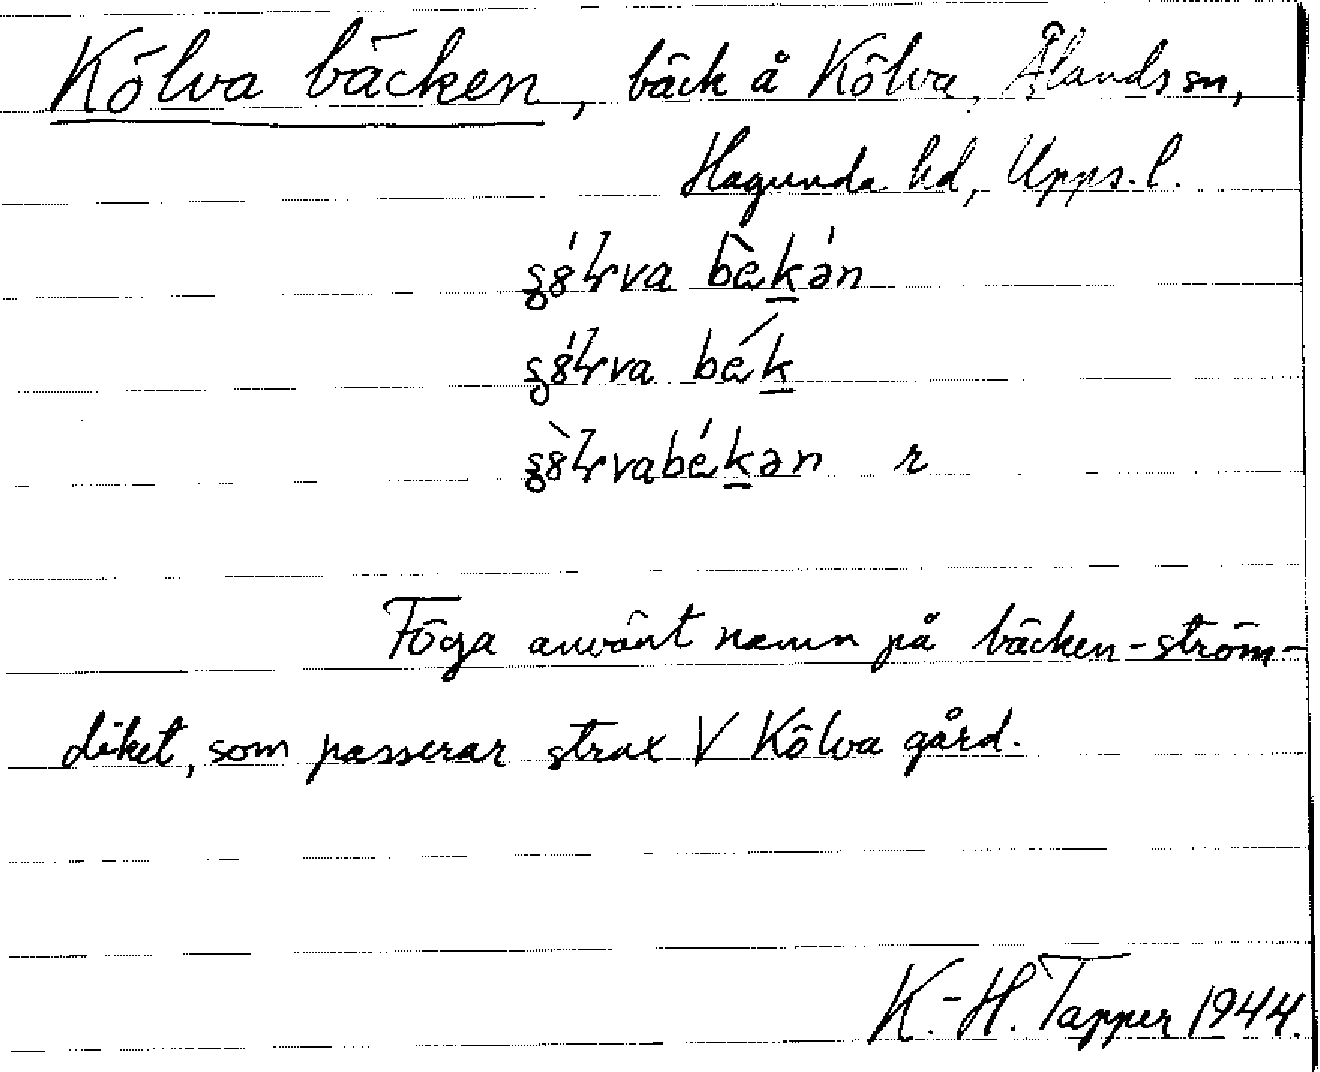 Kölva bäcken, bäck å Kölva, Ålands sn,
Hagunda hd, Upps. l.
bèkən
bék
r
Föga använt namn på bäcken-ström-
diket, som passerar strax V Kölva gård.
K.-H. Tapper 1944.